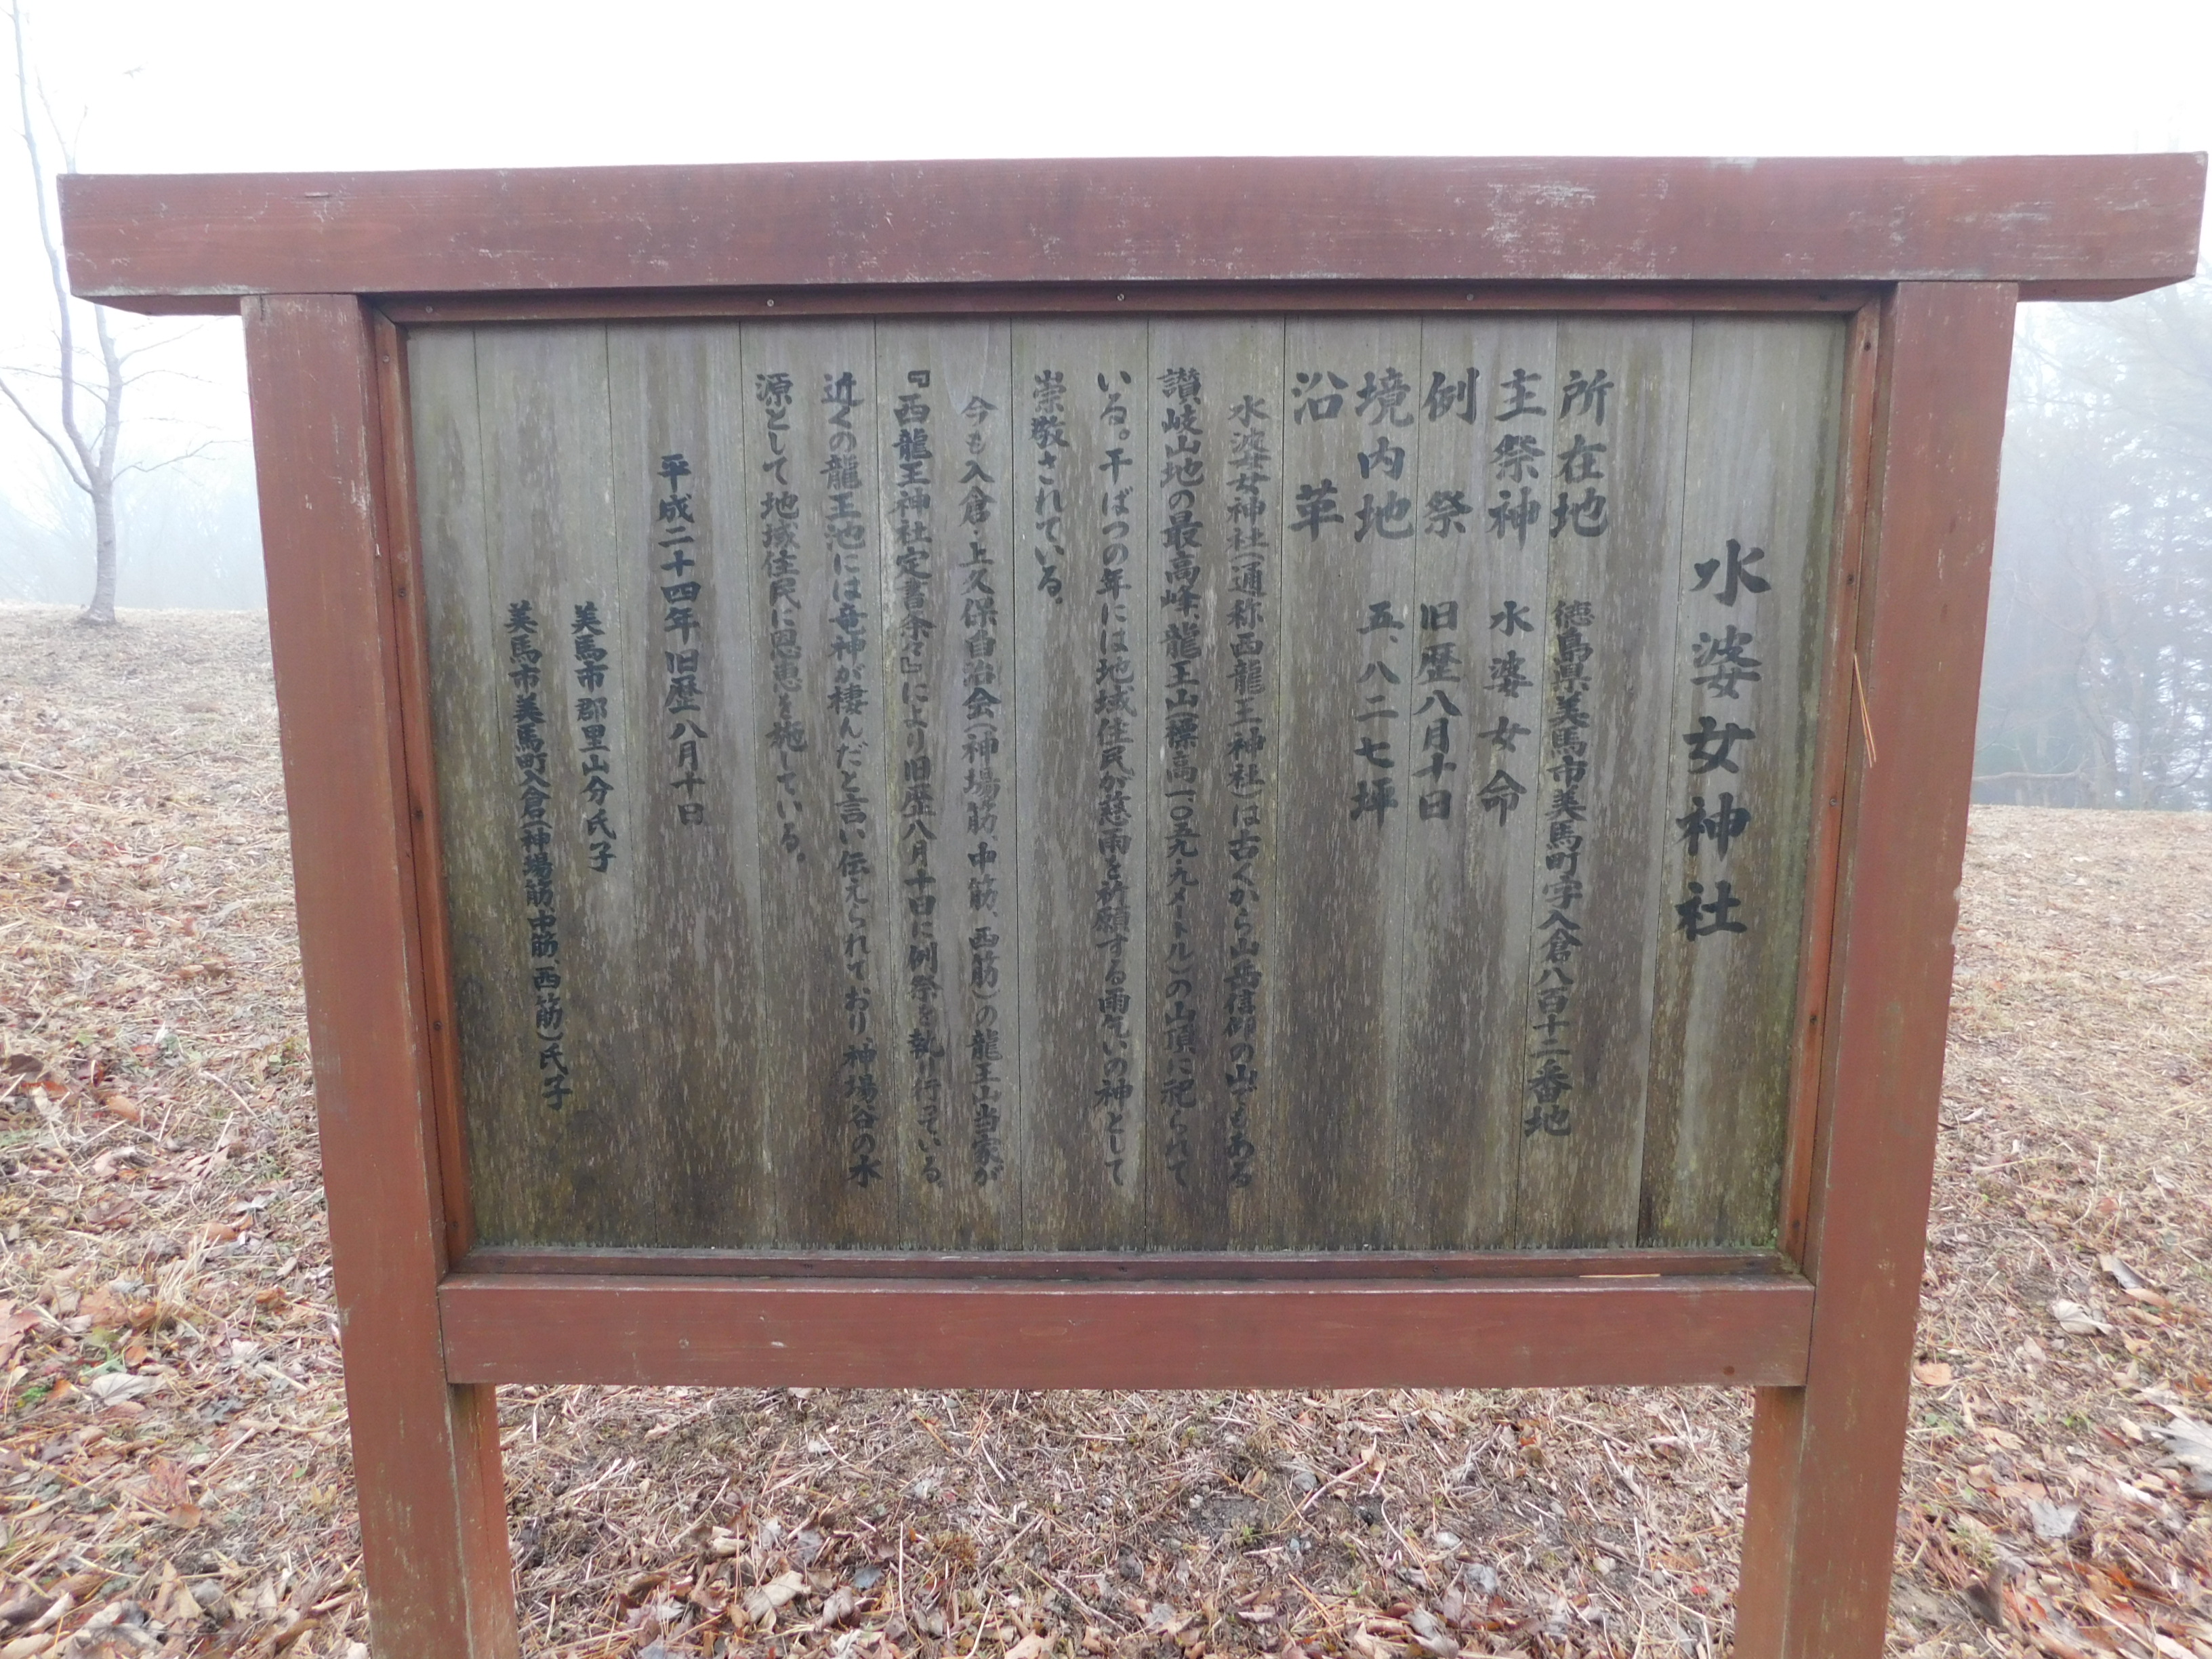 水婆女神社
所在地 徳島県美馬市美馬町字入倉八百十二番地
主祭神 水婆女命
例祭 旧歴八月十日
境内地 五、八二七坪
沿革
水波女女神社(通称西龍王神社)は古くから山岳信仰の山でもある
讃岐山地の最高峰、龍王山(標高一、〇五九・九メートル)の山頂に祀られて
いる。干ばつの年には地域住民が慈雨を祈願する雨乞いの神として
崇敬されている。
今も入倉・上久保自治会(神場筋、中筋、西筋)の龍王山当家が
『西龍王神社定書条々』により旧歴八月十日に例祭を執り行っている。
近くの龍王池には竜神が棲んだと言い伝えられており、神場谷の水
源として地域住民に恩恵を施している。
平成二十四年旧歴八月十日
美馬市郡里山分氏子
美馬市美馬町入倉(神場筋、中筋、西筋)氏子